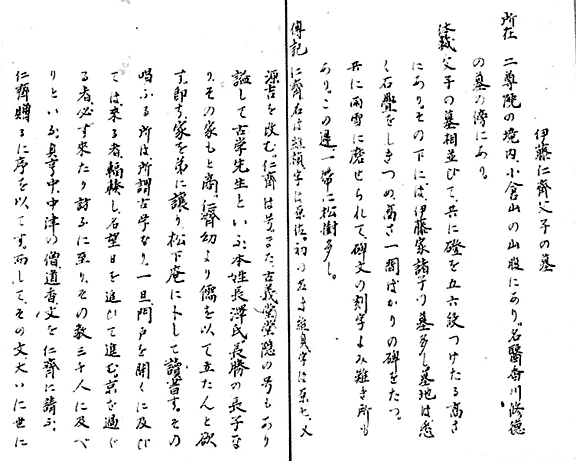 伊藤仁齋父子の墓
所在 二尊院の境内小倉山の山腹にあり。名醫香川修德
の墓の傍にあり。
父子の墓相並びて、共に磴を五六段つけたる高さ
にあり。その下には、伊藤家諸子の墓多し。墓地は悉
く石疊をしきつめ、高さ一間ばかりの碑をたつ。
共に雨雪に磨せられて、碑文の刻字よみ難き所も
あり。この邊一帶に松樹多し。
傳記 仁齋名は維楨字は原佐、初の名は維貞字は源七、又
源吉を改む。仁齋は号、また古義堂棠隱の号もあり
謚して古学先生といふ。本姓長澤氏、長勝の長子な
り。その家もと商、仁齋幼より儒を以て立たんと欲
す。即ち家を弟に讓り、松下庵に卜して讀書す。その
唱ふる所は所謂古学なり。一旦門戸を開くに及び
ては来る者輻輳し、名望日を追いて進む。京を過ぐ
る者必ず来たり訪ふに至り、その教三千人に及べ
りといふ。貞亨中、中津の僧道香、文を仁齋に請ふ、
仁齋贈るに序を以てす。而して、その文大いに世に